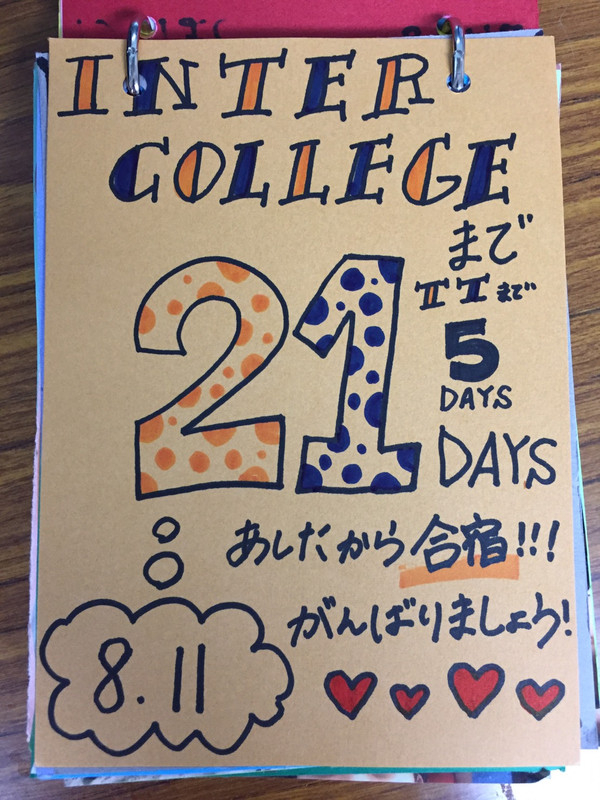 INTER
COLLEGE
まで
21
TTまで
5
DAYS
DAYS
あしたから合宿!!!
がんばりましょう!
8.11